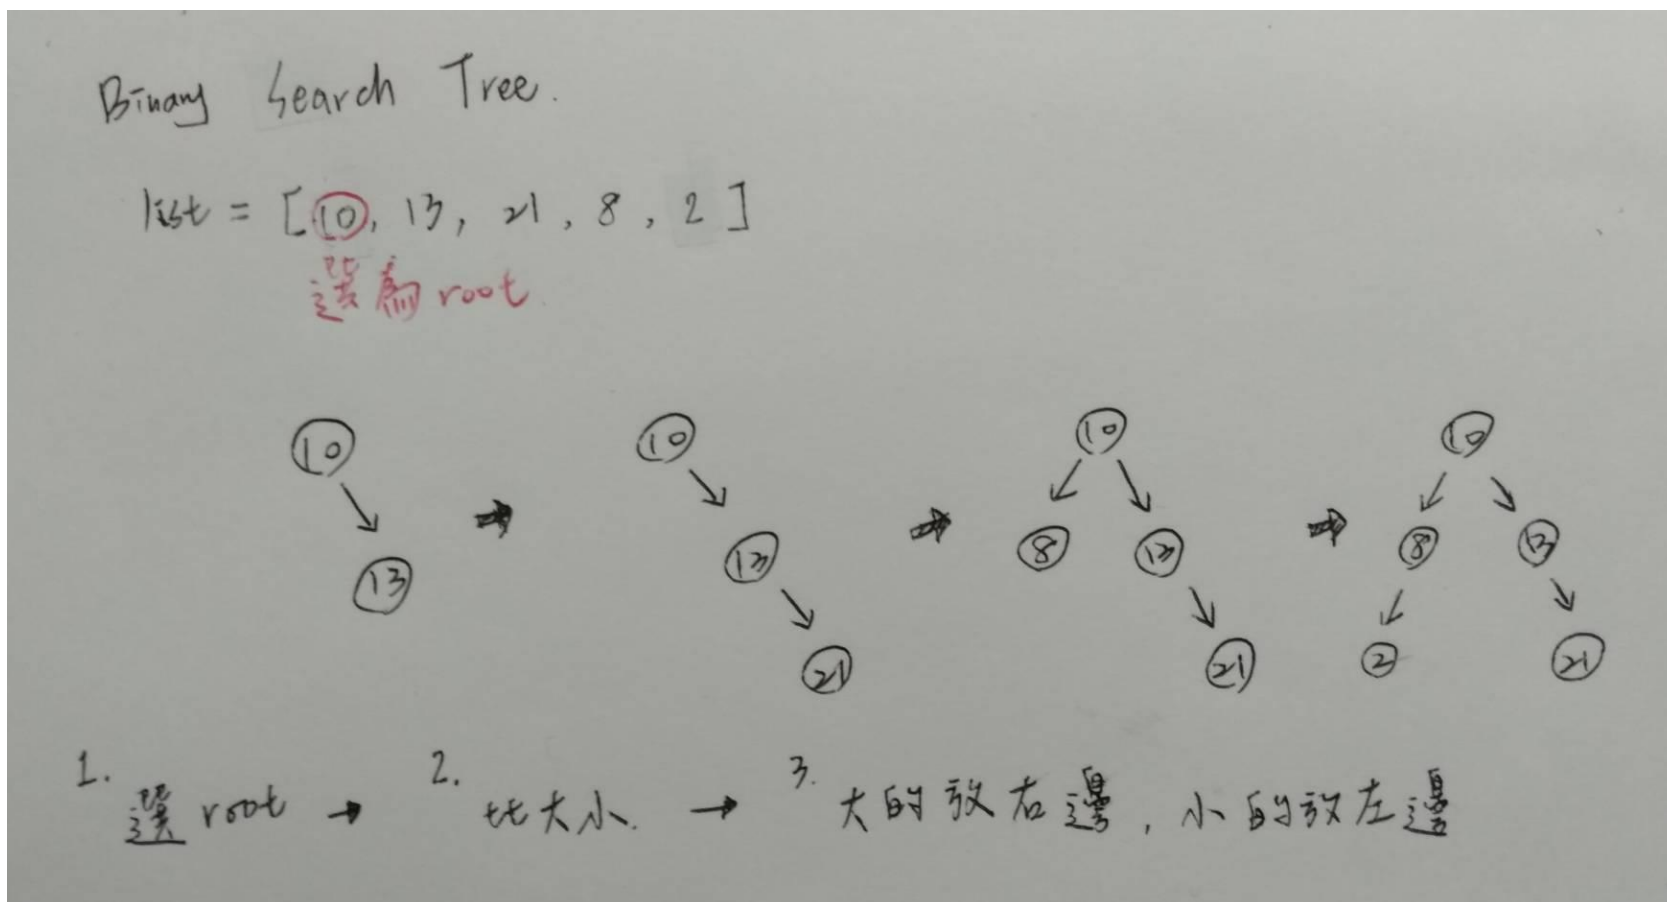 Binary Search Tree.
list = [10, 13, 21, 8, 2]
選為 root
10 10 10 10
13 13 8 13 8 13
21 21 2 21
1. 選 root → 2. 比大小. → 3. 大的放右邊, 小的放左邊